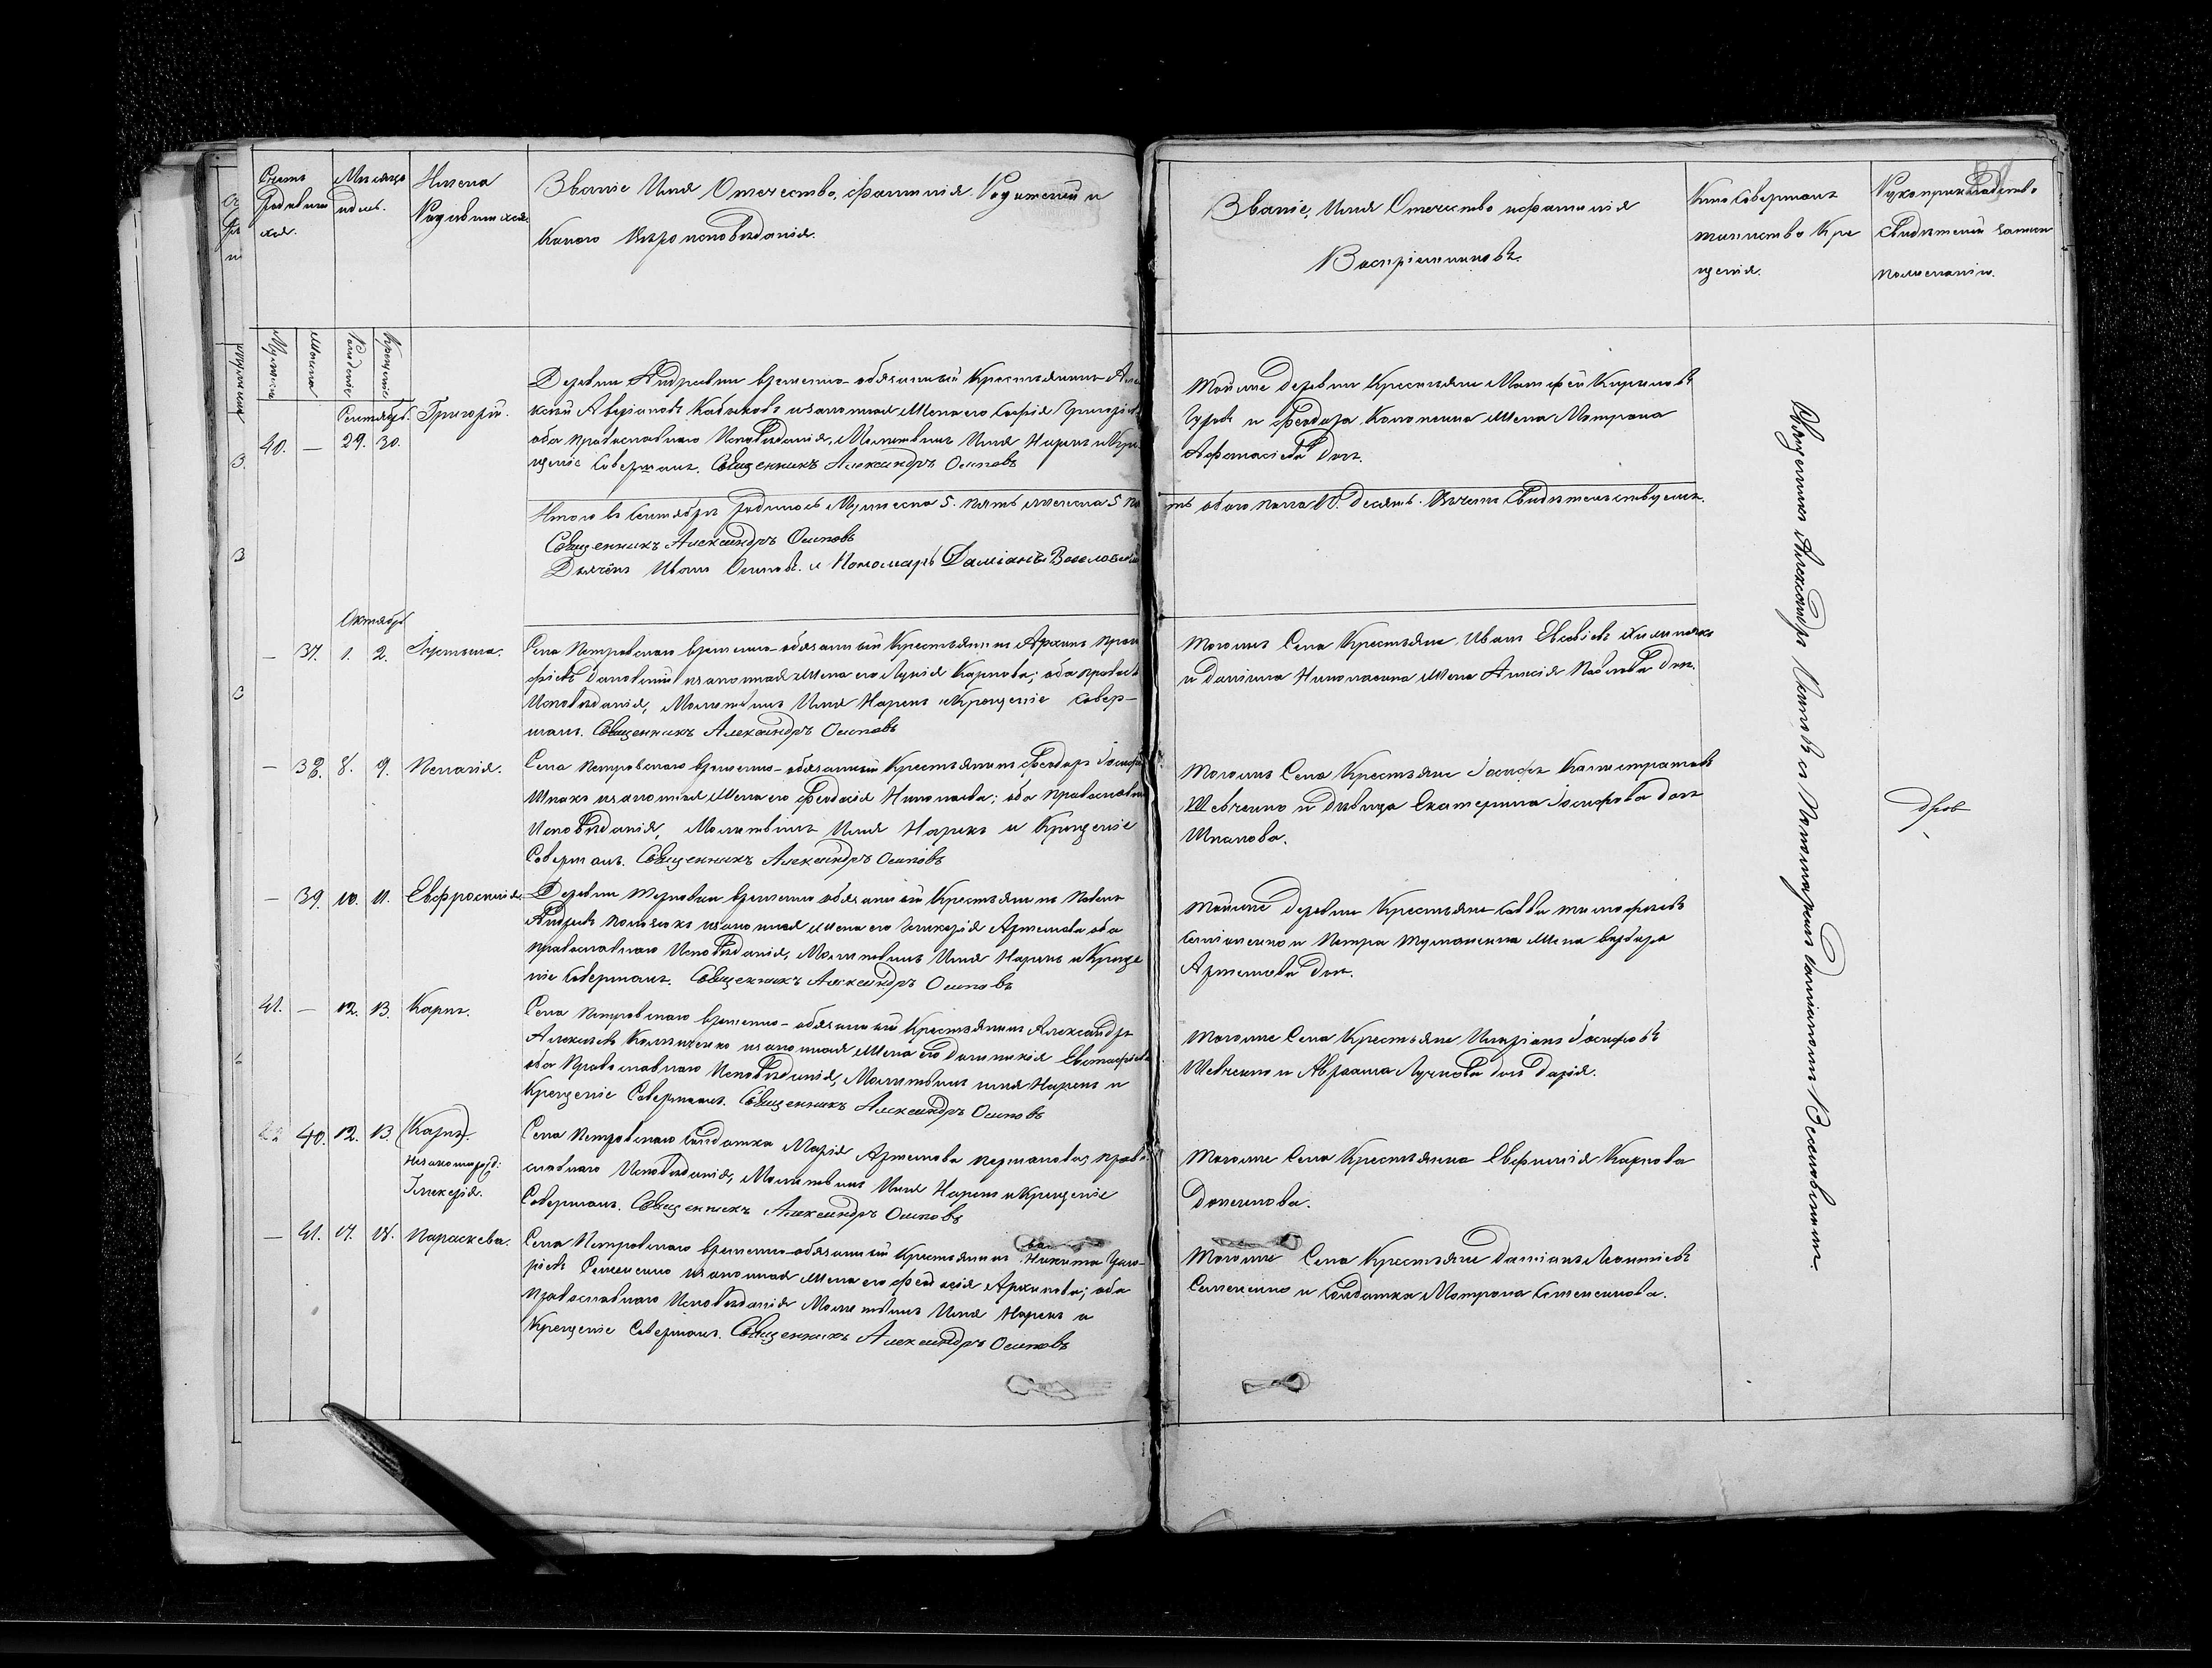 Счетъ
Родивших
ся.
Мѣсяцъ
и день.
Имена
Родившихся.
Званіе Имя Отечество, фамилія Родителей и
Какого Вѣроисповѣданія.
Званіе, Имя Отечество и фамилія
Воспріемниковъ.
Кто Совершалъ
таинство Кре
щенія.
Рукоприкладство
Свидѣтелей записи
по желанію.
Мужеска
Женска
Рожденіе
Крещеніе
Сентябрь.
40. — 29. 30. Григорій.
Деревни Андреевки временно-обязанный Крестьянинъ Але
ксѣй Аверіановъ и законная Жена его Софія Григоріева
оба православнаго Исповѣданія, Молитвилъ Имя Нарекъ и Кре
щеніе Совершалъ. Священникъ Александръ Осиповъ
Тойже деревни Крестьяне Матфей Кириловъ
Гуровъ и Феодора Жена Матрона
Афанасіева дочь.
Итого въ Сентябрѣ родилось Мужеска 5. пять женска 5 пя
ть обоего пола 10. десять. Въ чемъ Свидѣтельствуемъ.
Священникъ Александръ Осиповъ
Дьячекъ Иванъ Осиповъ. и Пономарь Даміанъ
Октябрь
— 37. 1. 2. Іустина.
Села Петровскаго временно-обязанный Крестьянинъ Архипъ Проко
фіевъ и законная Жена его Лукія Карпова; оба правосл
Исповѣданія, Молитвилъ Имя Нарекъ и Крещеніе Совер-
шалъ. Священникъ Александръ Осиповъ
Тогожъ Села Крестьяне Иванъ Евсевіевъ
и Даніила Жена Анисія Павлова дочь.
— 38. 8. 9. Пелагія.
Села Петровскаго временно-обязанный Крестьянинъ Феодоръ Іосифо
Шпакъ и законная Жена его Феодосія Николаева; оба православна
Исповѣданія, Молитвилъ Имя Нарекъ и Крещеніе
Совершалъ. Священникъ Александръ Осиповъ
Тогожъ Села Крестьяне Іосифъ Калистратовъ
Шевченко и дѣвица Екатерина Іосифова дочь
Шпакова.
— 39. 10. 11. Евфросинія.
Деревни Терновки временно обязанный Крестьянинъ Павелъ
Андреевъ и законная жена его Гликерія Артемова оба
православнаго Исповѣданія, Молитвилъ Имя Нарекъ и Креще
ніе Совершалъ. Священникъ Александръ Осиповъ
Тойже деревни Крестьяне Савва Тимофеевъ
и Петра Жена Варвара
Артемова дочь.
41. — 12. 13. Карпъ.
Села Петровскаго временно-обязанный Крестьянинъ Александръ
Алексѣевъ и законная Жена его Домникія Евстафіева
оба Православнаго Исповѣданія, Молитвилъ имя Нарекъ и
Крещеніе Совершалъ. Священникъ Александръ Осиповъ
Тогоже Села Крестьяне Иларіонъ Іосифовъ
Шевченко и Авраама Лучкова дочь Дарія.
42 40. 12. 13. (Карпъ).
незаконнорожд:
Гликерія.
Села Петровскаго Солдатка Марія Артемова православ
славнаго Исповѣданія, Молитвилъ Имя Нарекъ и Крещеніе
Совершалъ. Священникъ Александръ Осиповъ
Тогоже Села Крестьянка Евфимія Карпова
— 41. 17. 18. Параскева.
Села Петровскаго временно-обязанный Крестьянинъ Никита Григо-
ріевъ Семененко и законная Жена его Феодосія Архипова; оба
православнаго Исповѣданія Молитвилъ Имя Нарекъ и
Крещеніе Совершалъ. Священникъ Александръ Осиповъ
Тогоже Села Крестьяне Даміанъ Леонтіевъ
Семененко и Солдатка Матрона Семененкова.
Священникъ Александръ Осиповъ съ Пономаремъ Даміаномъ